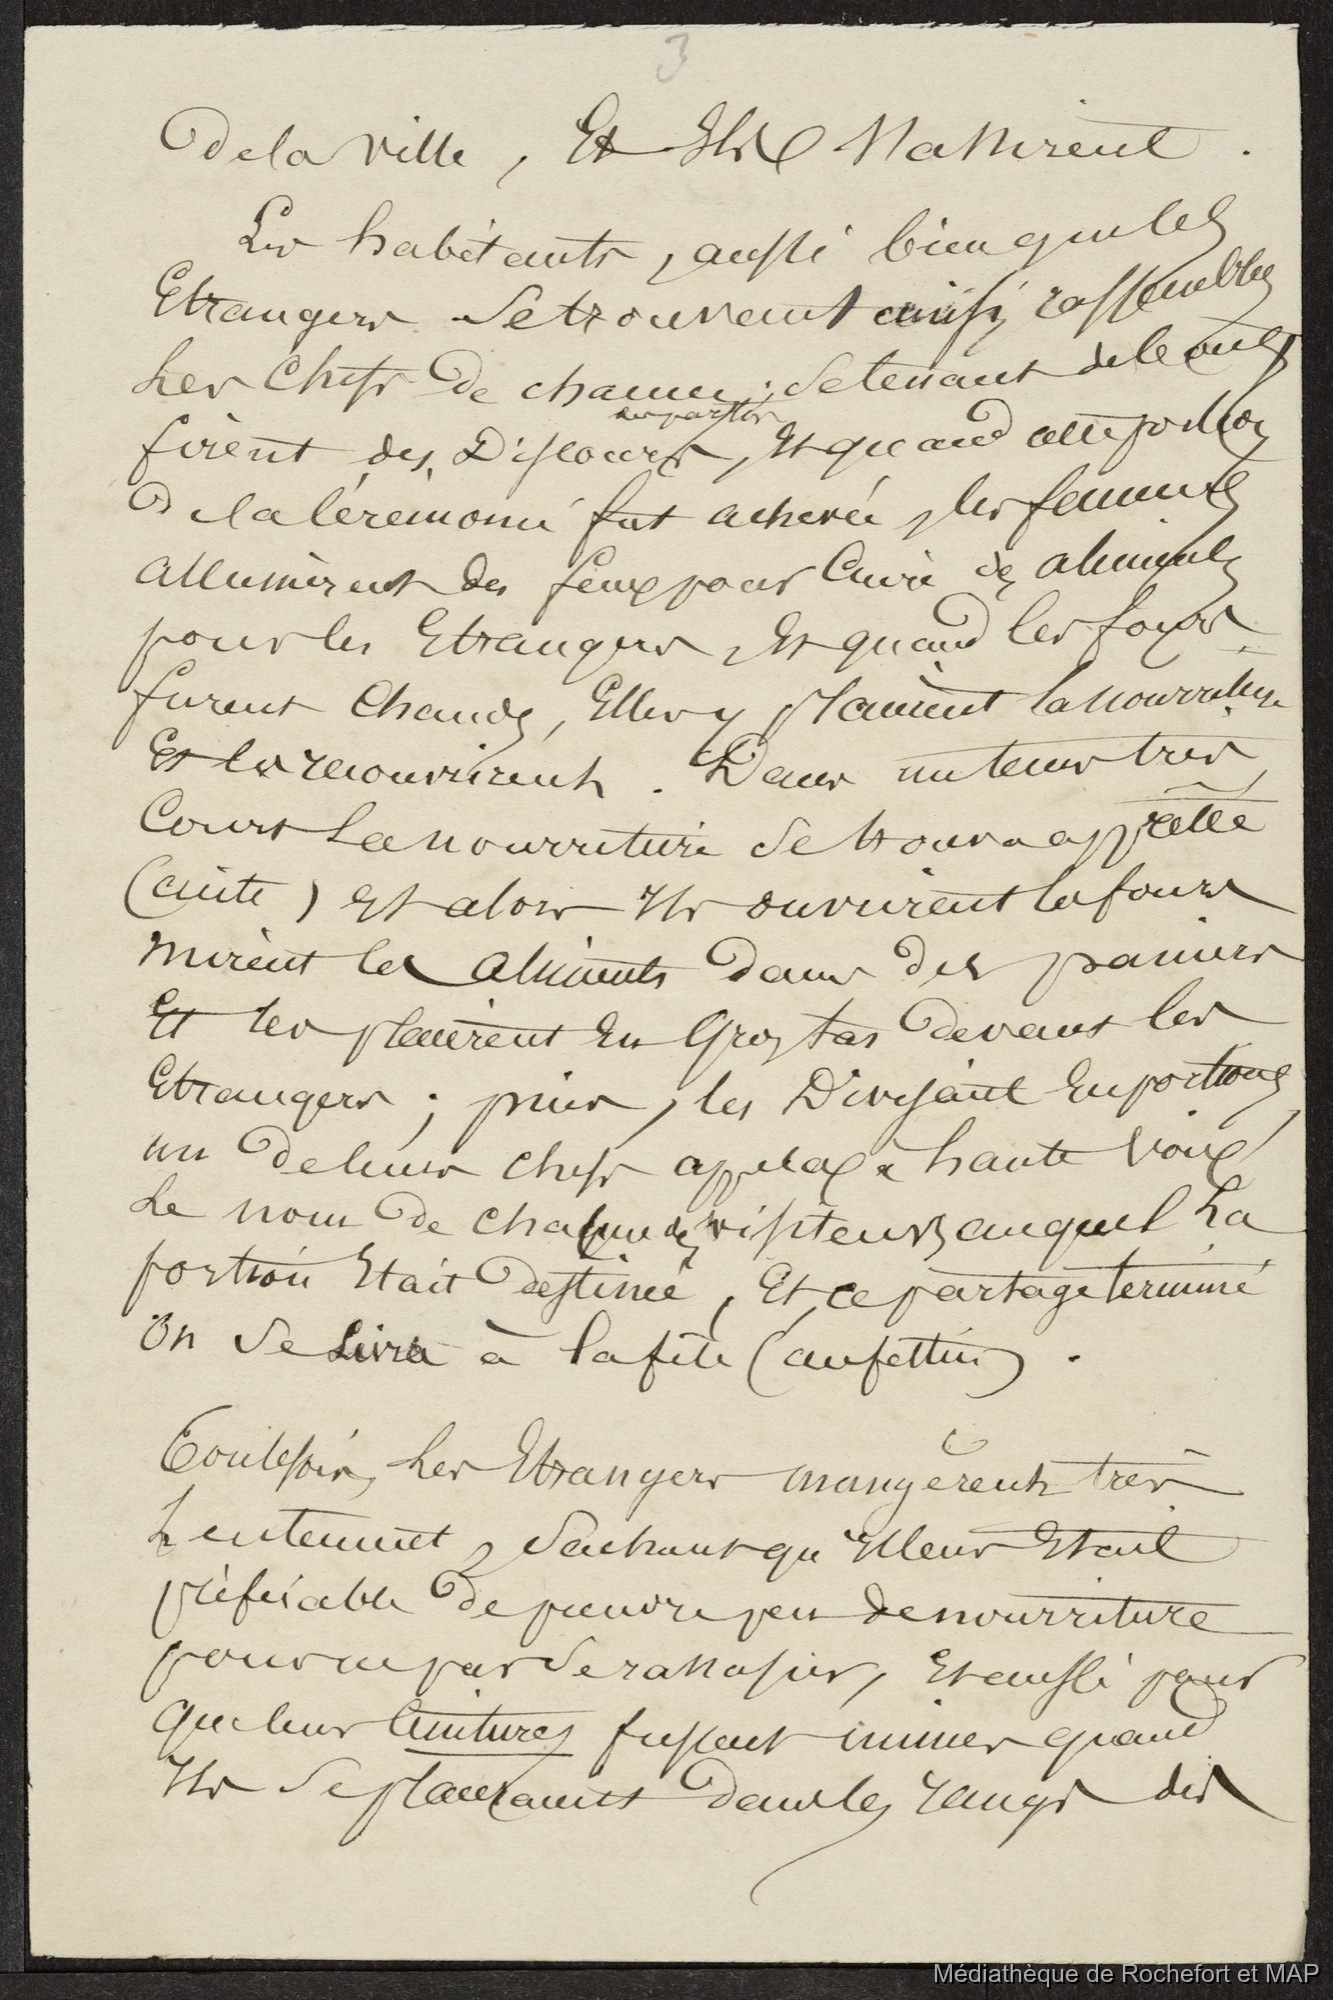 3
De la ville, Et Ils s'assirent.
Les habitants, aussi bien que les
Etrangers se trouvant ainsi rassemblés
Les Chefs de chacun, se tenant debout
firent des Discours, Et quand cette portion
De la Cérémonie fut achevée, les femmes
allumèrent des feux pour Cuire des aliments
pour les Etrangers, Et quand les fours
furent Chauds, Elles y placèrent la nourriture
Et les recouvrirent. Dans un tems très
Court La nourriture se trouva apprêtée
(cuite) Et alors Ils ouvrirent les fours
mirent les Aliments dans des paniers
Et les placèrent En Gros tas devant les
Etrangers; puis, les Divisant En portions,
un de leurs chefs appela à haute voix
Le nom de chacun des visiteurs auquel La
portion Etait Destinée, Et ce partage terminé
On se Livra à la fête (au festin).
Toutefois, Les Etrangers mangèrent très
Lentement, Sachant qu'Il leur Etait
préférable De prendre peu de nourriture
pour ne pas se rassasier, Et aussi pour
Que leurs Ceintures fussent minces quand
Ils se placeraient Dans les rangs des
Médiathèque de Rochefort et MAP